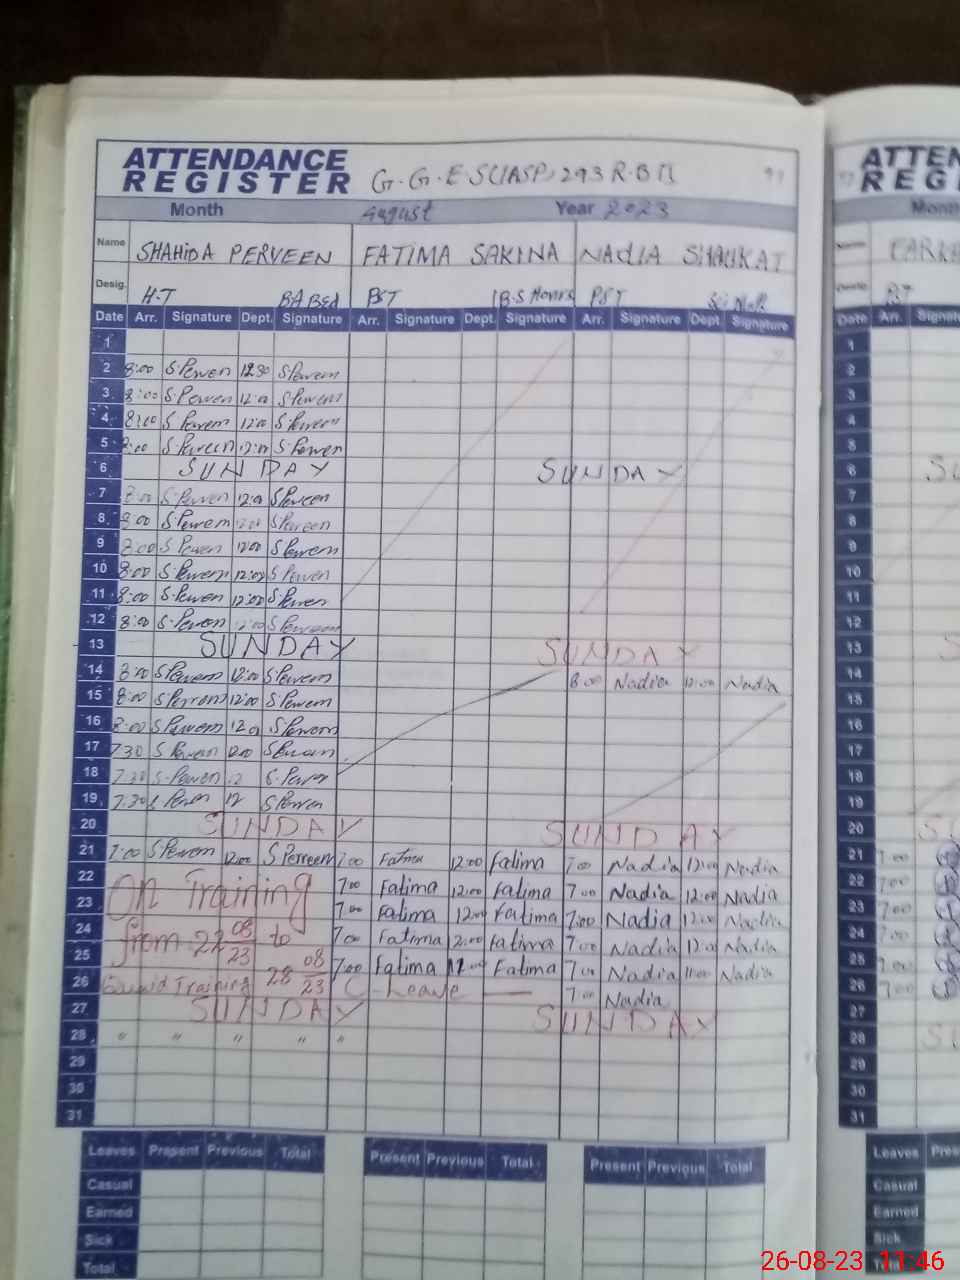 ATTENDANCE REGISTER G.G.E.S(IASP) 293 R.B II 97
Month August Year 2023
Name SHAHIDA PERVEEN FATIMA SAKINA NAdIA SHAUKAT
Desig. H.T BA BEd PST B.S Honrs PST
Date Arr. Signature Dept. Signature Arr. Signature Dept. Signature Arr. Signature Dept Signature
1
2 8:00 S Perveen 12:30 S Perveen
3 8:00 S Perveen 12:00 S Perveen
4 8:00 S Perveen 12:00 S Perveen
5 8:00 S Perveen 12:00 S Perveen
6 SUNDAY SUNDAY
7 8:00 S Perveen 12:00 S Perveen
8 8:00 S Perveen 12:00 S Perveen
9 8:00 S Perveen 12:00 S Perveen
10 8:00 S Perveen 12:00 S Perveen
11 8:00 S Perveen 12:00 S Perveen
12 8:00 S Perveen 12:00 S Perveen
13 SUNDAY SUNDAY
14 8:00 S Perveen 12:00 S Perveen 8:00 Nadia 12:00 Nadia
15 8:00 S Perveen 12:00 S Perveen
16 8:00 S Perveen 12:00 S Perveen
17 7:30 S Perveen 12:00 S Perveen
18 7:30 S Perveen 12 S Perveen
19 7:30 S Perveen 12 S Perveen
20 SUNDAY SUNDAY
21 7:00 S Perveen 12:00 S Perveen 7:00 Fatima 12:00 Fatima 7:00 Nadia 12:00 Nadia
22 On Training 7:00 Fatima 12:00 Fatima 7:00 Nadia 12:00 Nadia
23 7:00 Fatima 12:00 Fatima 7:00 Nadia 12:00 Nadia
24 from 22 08/23 to 7:00 Fatima 12:00 Fatima 7:00 Nadia 12:00 Nadia
25 28 08/23 7:00 Fatima 12:00 Fatima 7:00 Nadia 11:00 Nadia
26 Training C-Leave 7:00 Nadia
27 SUNDAY SUNDAY
28 " " " " "
29
30
31
Leaves Present Previous Total Present Previous Total Present Previous Total
Casual
Earned
Sick
Total
ATTEN
REG
Month
Date Arr. Signatu
1
2
3
4
5
6 SU
7
8
9
10
11
12
13 S
14
15
16
17
18
19
20 SU
21 7:00
22 7:00
23 7:00
24 7:00
25 7:00
26 7:00
27
28 SU
29
30
31
Leaves Pres
Casual
Earned
Sick
Total
26-08-23 11:46